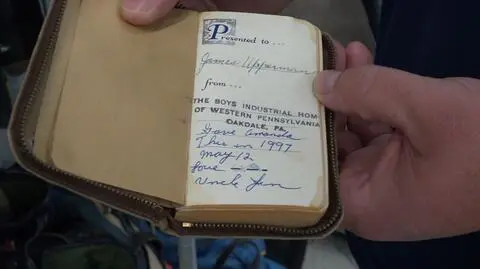 Presented to ...
James Upperman
from ...
THE BOYS INDUSTRIAL HOM
OF WESTERN PENNSYLVANIA
OAKDALE, PA.
Gave Amanda
This in 1997
May 12
Love
Uncle Jim